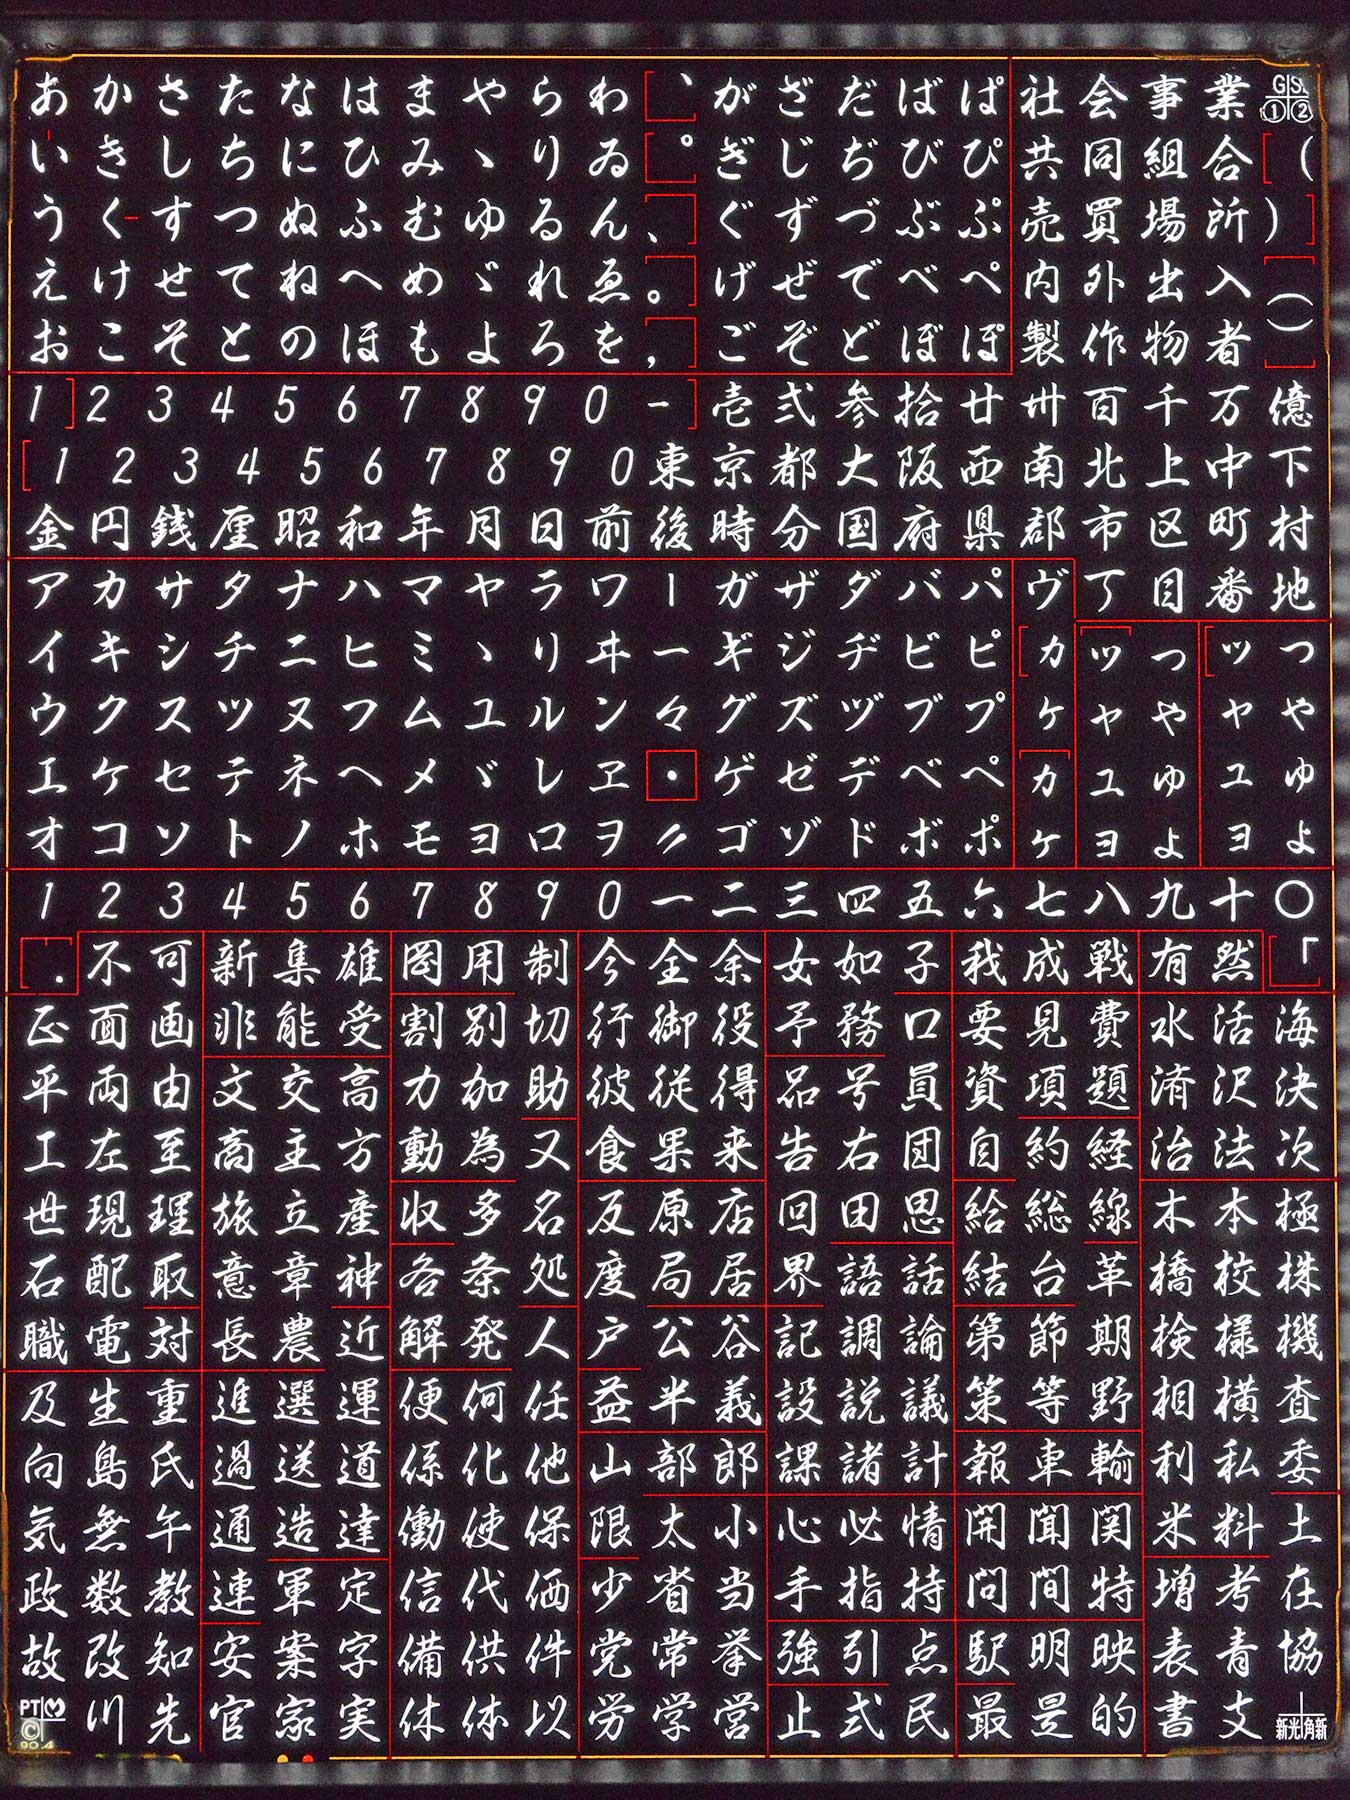 あかさたなはまやらわ、がざだばぱ社会事業GS①②
いきしちにひみヽりゐ。ぎじぢびぴ共同組合（
うくすつぬふむゆるん、ぐずづぶぷ売買場所）
えけせてねへめゞれゑ。げぜでべぺ内外出入︵
おこそとのほもよろを，ごぞどぼぽ製作物者︶
1234567890-壱弐参拾廿卅百千万億
1234567890東京都大阪西南北上中下
金円銭厘昭和年月日前後時分国府県郡市区町村
アカサタナハマヤラワ｜ガザダバパヴ丁目番地
イキシチニヒミヽリヰーギジヂビピカッっッっ
ウクスツヌフムユルン々グズヅブプケャゃャゃ
エケセテネヘメヾレヱ・ゲゼデベペカュゅュゅ
オコソトノホモヨロヲ〃ゴゾドボポケョょョょ
1234567890一二三四五六七八九十〇
.不可新集雄岡用制今全余女如子我成戦有然「
正面画非能受割別切行御役予務口要見費水活海
平両由文交高力加助彼従得品号員資項題済沢決
工左至高主方動為又食果来告右団自約経治法次
世現理旅立産収多名反原店回田思給総線木本極
石配取意章神各条処度局居界語話結台革橋校株
職電対長農近解発人戸公谷記調論第節期検様機
及生重進選運便何任益半義設説議策等野相横査
向島氏過送道係化他山部郎課諸計報車輸利私委
気無午通造達働使保限太小心必情開聞関米料土
政数教連軍定信代価少省当手指持問間特増考在
故改知安案字備供件党常挙強引点駅明映表青協
PT©川先官家実休体以労学営止式民最是的書支新光角新